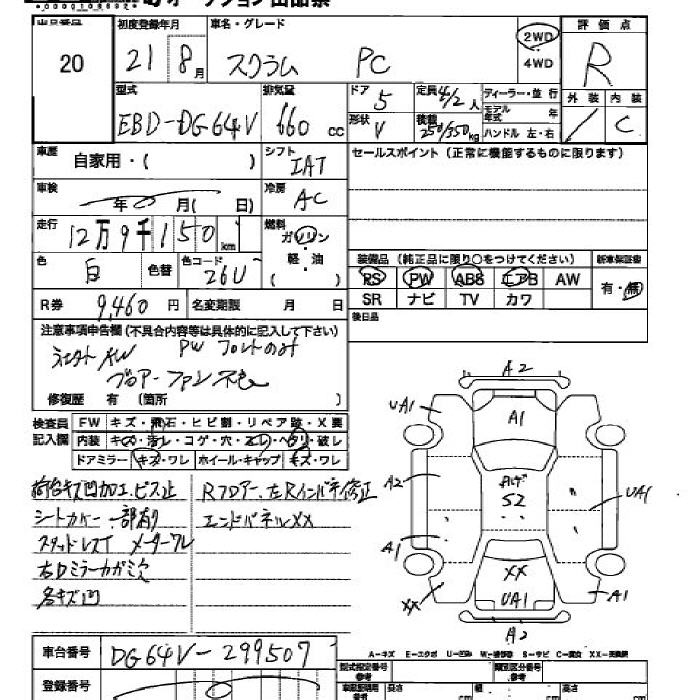 オークション出品票
出品番号 初度登録年月 車名・グレード 評価点
20 21 8月 スクラム PC 2WD 4WD R
型式 排気量 ドア 定員 ディーラー・並行 外装 内装
EBD-DG64V 660cc 5 4/2人 モデル年式 年 / C
形状 V 積載 250/350kg ハンドル 左・右
車歴 自家用・( ) シフト IAT セールスポイント(正常に機能するものに限ります)
車検 年 月( 日) 冷房 AC
走行 12万9千150km 燃料 ガソリン
色 白 色替 色コード 26U 軽・油 ( )
装備品(純正品に限り○をつけてください) 新車保証書
PS PW ABS エアB AW 有・無
SR ナビ TV カワ
R券 9,460円 名変期限 月 日 後日品
注意事項申告欄(不具合内容等は具体的に記入して下さい)
AW PW フロントのみ
ブロアーファン
修復歴 有(箇所 )
検査員記入欄 FW キズ・飛石・ヒビ割・リペア跡・X要
内装 キズ・汚レ・コゲ・穴・スレ・ヘタリ・破レ
ドアミラー キズ・ワレ ホイール・キャップ キズ・ワレ
荷台キズ凹加工、ビス止 Rフロアー、左Rインパネ修正
シートカバー 一部有り エンドパネルXX
スタッドレス メーターワレ
右Dミラーカガミ欠
各キズ凹
A2
UA1 A1
A2 S2 UA1
A1 XX
XX UA1 A1
A2
A-キズ E-エクボ U-凹ミ W-補修跡 S-サビ C-腐食 XX-交換済
車台番号 DG64V-299507 型式指定番号 参考 類別区分番号 参考
登録番号 車庫証明用 参考 長さ cm 幅 cm 高さ cm